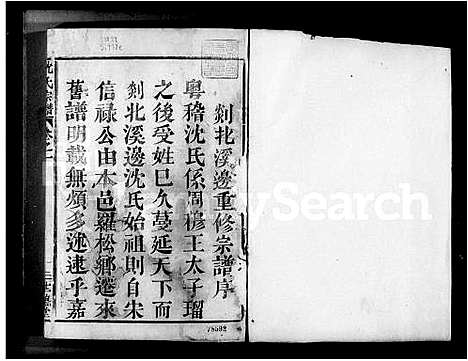 剡北溪邊重修宗譜序
粵稽沈氏係周穆王太子瑠
之後受姓已久蔓延天下而
剡北溪邊沈氏始祖則自朱
信祿公由本邑羅松鄉遷來
舊譜明載無煩多述逮乎嘉
沈氏宗譜
Search
78592